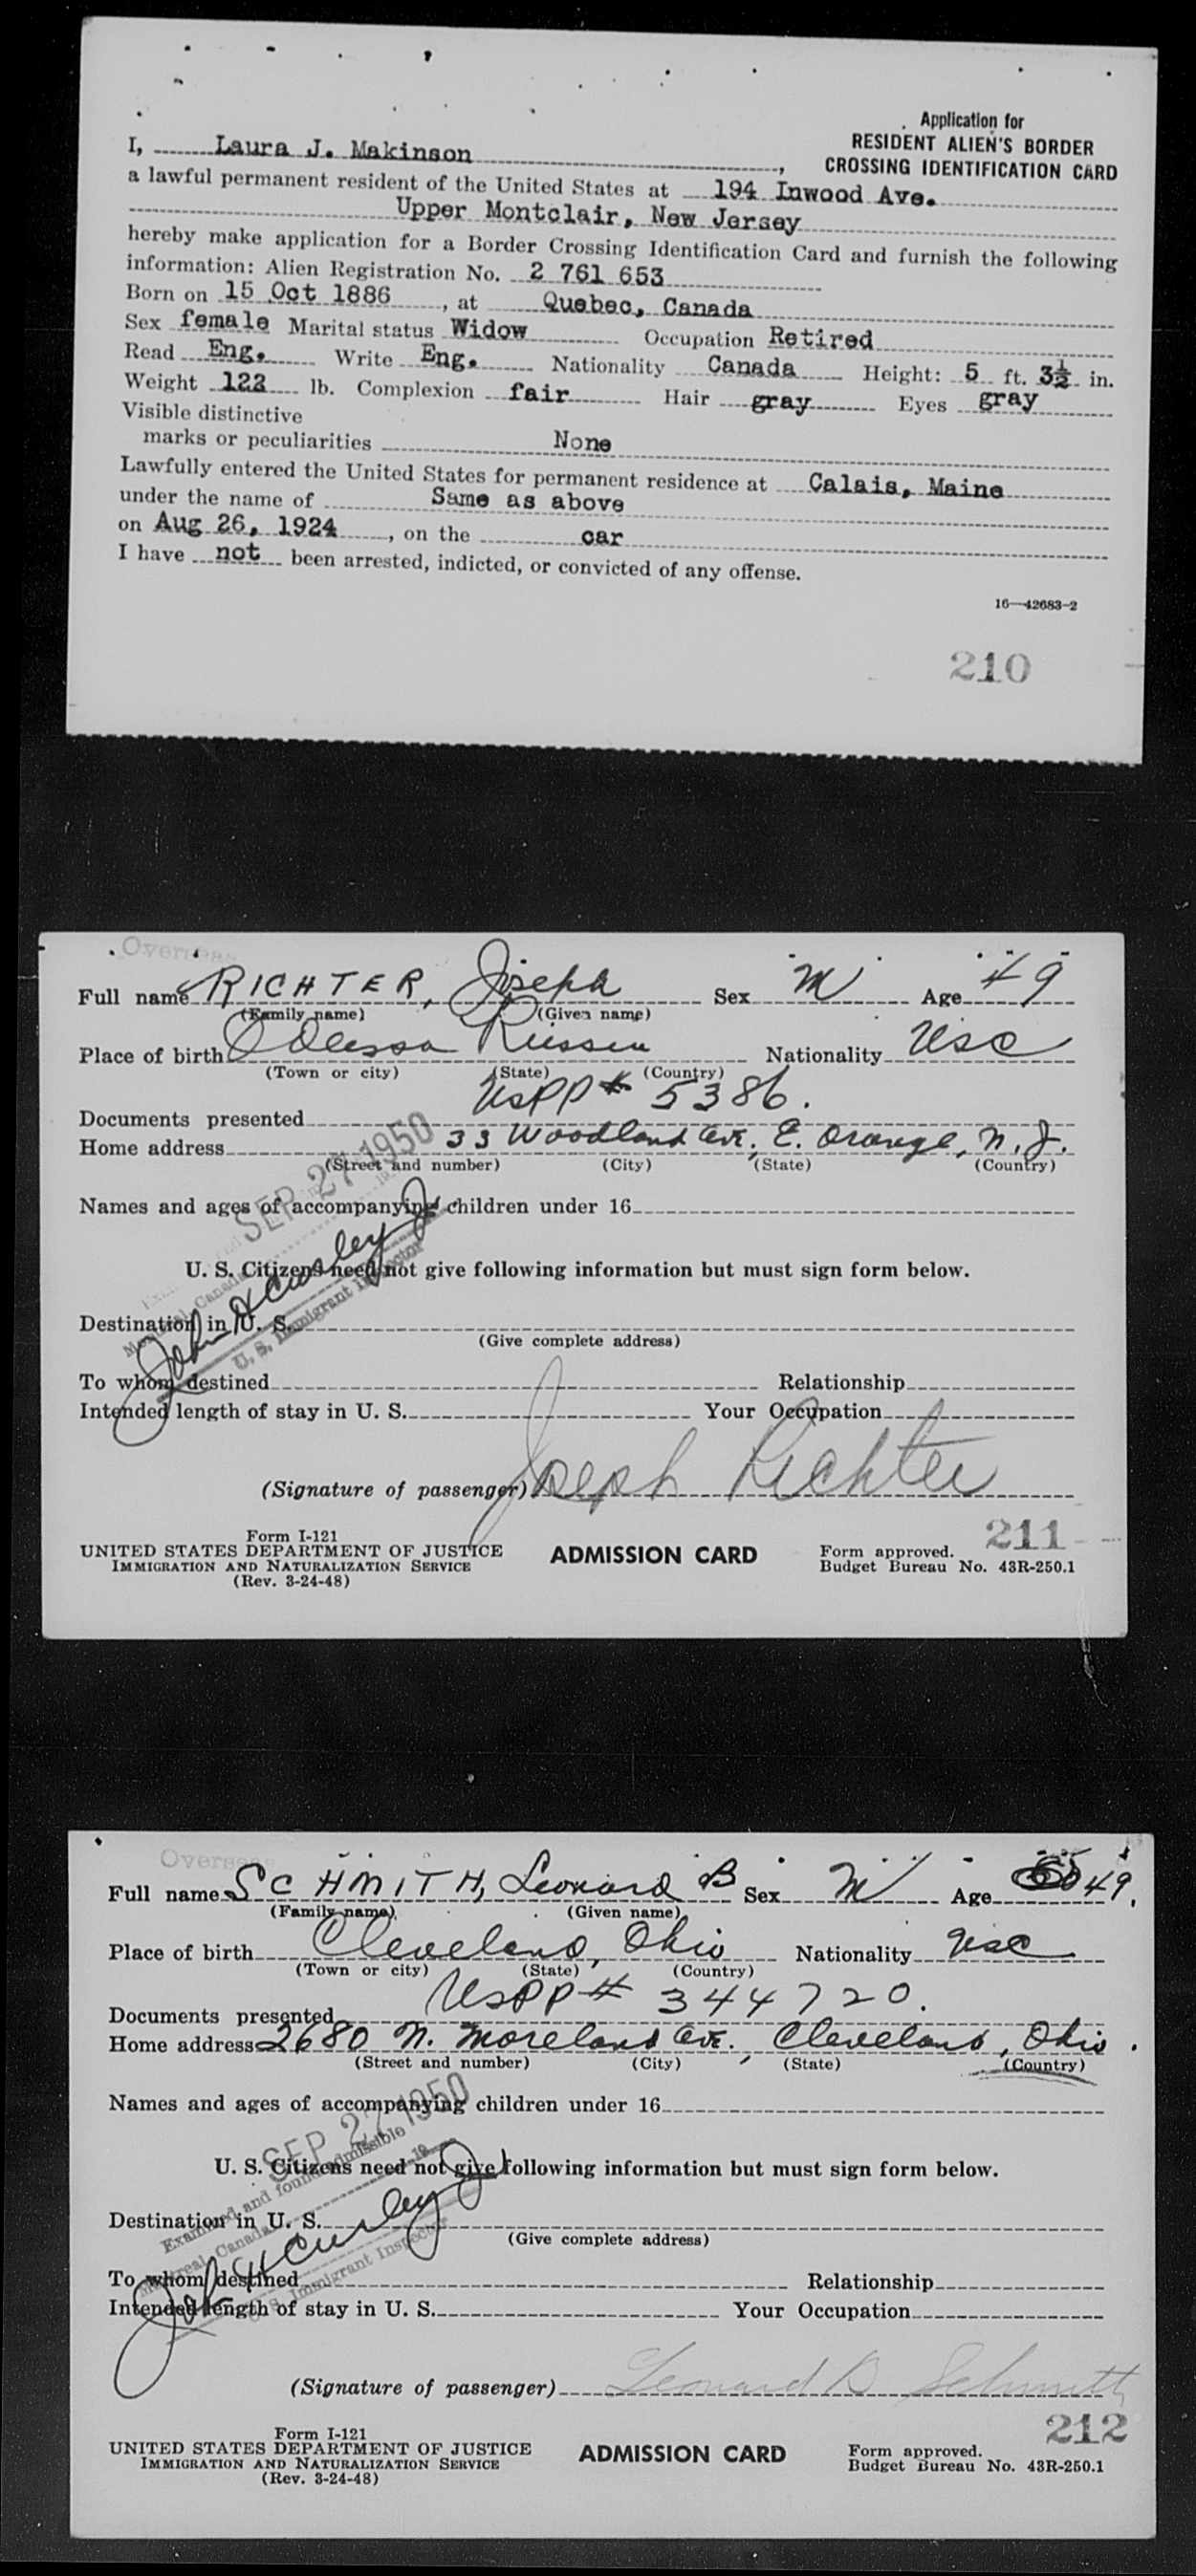 Application for
RESIDENT ALIEN'S BORDER
CROSSING IDENTIFICATION CARD
I, Laura J. Makinson,
a lawful permanent resident of the United States at 194 Inwood Ave.
Upper Montclair, New Jersey
hereby make application for a Border Crossing Identification Card and furnish the following
information: Alien Registration No. 2 761 653
Born on 15 Oct 1886, at Quebec, Canada
Sex female Marital status Widow Occupation Retired
Read Eng. Write Eng. Nationality Canada Height: 5 ft. 3½ in.
Weight 122 lb. Complexion fair Hair gray Eyes gray
Visible distinctive
marks or peculiarities None
Lawfully entered the United States for permanent residence at Calais, Maine
under the name of Same as above
on Aug 26, 1924, on the car
I have not been arrested, indicted, or convicted of any offense.
16—42683-2
210
Overseas
Full name RICHTER, Joseph Sex M Age 49
(Family name) (Given name)
Place of birth Odessa Russia Nationality USC
(Town or city) (State) (Country)
Documents presented USPP# 5386.
Home address 33 Woodland Ave., E. Orange, N.J.
(Street and number) (City) (State) (Country)
SEP 27 1950
Names and ages of accompanying children under 16
U. S. Citizens need not give following information but must sign form below.
Montreal, Canada
John H Curley Jr
U. S. Immigrant Inspector
Destination in U. S.
(Give complete address)
To whom destined Relationship
Intended length of stay in U. S. Your Occupation
(Signature of passenger) Joseph Richter
211
Form I-121
UNITED STATES DEPARTMENT OF JUSTICE
IMMIGRATION AND NATURALIZATION SERVICE
(Rev. 3-24-48)
ADMISSION CARD
Form approved.
Budget Bureau No. 43R-250.1
Overseas
Full name SCHMITH, Leonard B Sex M Age 49.
(Family name) (Given name)
Place of birth Cleveland, Ohio Nationality USC
(Town or city) (State) (Country)
Documents presented USPP# 344720.
Home address 2680 N. Moreland Ave., Cleveland, Ohio.
(Street and number) (City) (State) (Country)
Names and ages of accompanying children under 16
SEP 27 1950
U. S. Citizens need not give following information but must sign form below.
Examined and found admissible
Montreal, Canada 19
John H Curley Jr
U. S. Immigrant Inspector
Destination in U. S.
(Give complete address)
To whom destined Relationship
Intended length of stay in U. S. Your Occupation
(Signature of passenger) Leonard B Schmith
212
Form I-121
UNITED STATES DEPARTMENT OF JUSTICE
IMMIGRATION AND NATURALIZATION SERVICE
(Rev. 3-24-48)
ADMISSION CARD
Form approved.
Budget Bureau No. 43R-250.1